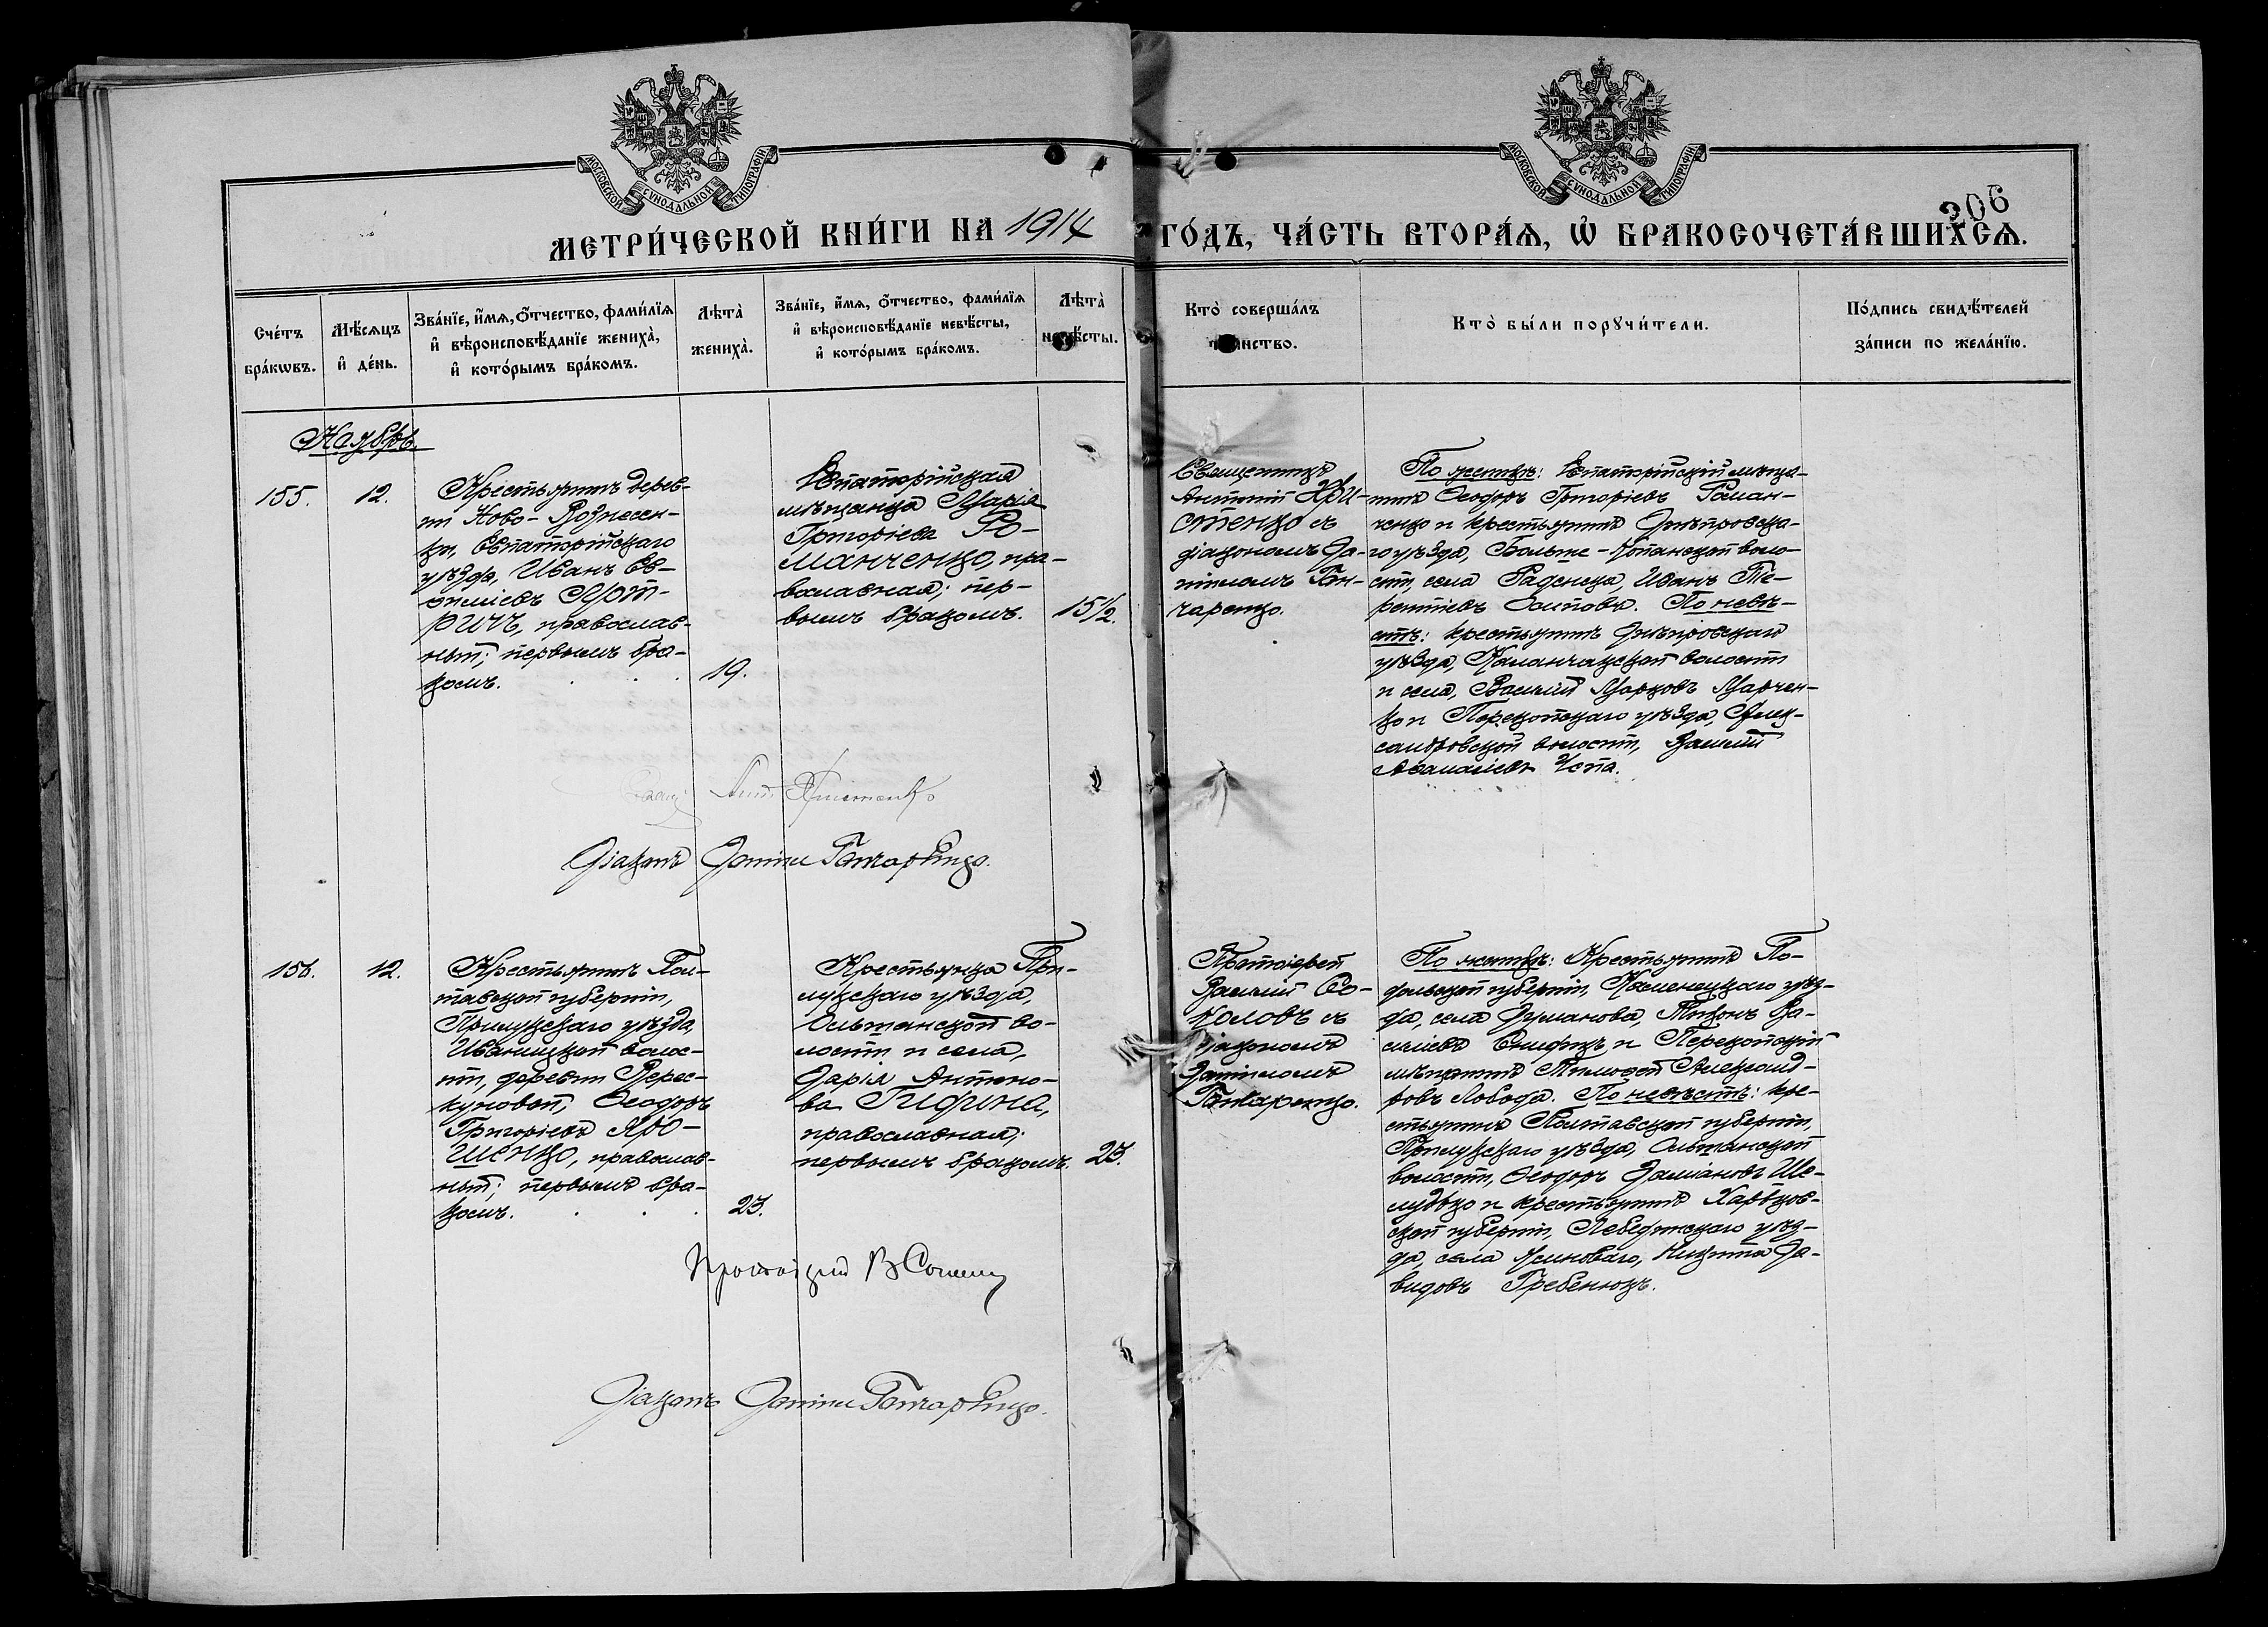 МОСКОВСКОЙ СУНОДАЛЬНОЙ ТИПОГРАФІИ
МОСКОВСКОЙ СУНОДАЛЬНОЙ ТИПОГРАФІИ
306
МЕТРИ́ЧЕСКОЙ КНИ́ГИ НА 1914 ГО́ДЪ, ЧА́СТЬ ВТОРА́Ѧ, Ѡ҆ БРАКОСОЧЕТА́ВШИХСѦ.
Сче́тъ бра́кѡвъ.
Мѣ́сѧцъ и҆ де́нь.
Зва́нїе, и҆́мѧ, ѻ҆́тчество, фами́лїѧ и҆ вѣроисповѣ́данїе жениха̀, и҆ кото́рымъ бра́комъ.
Лѣта̀ жениха̀.
Зва́нїе, и҆́мѧ, ѻ҆́тчество, фами́лїѧ и҆ вѣроисповѣ́данїе невѣ́сты, и҆ кото́рымъ бра́комъ.
Лѣта̀ невѣ́сты.
Кто̀ соверша́лъ таинство.
Кто̀ бы́ли порꙋчи́тели.
По́дпись свидѣ́телей за́писи по жела́нїю.
Ноябрь
155.
12.
Крестьянинъ дерев-
ни Ново-Вознесен-
ки, Евпаторійскаго
уѣзда, Иванъ Ев-
ѳиміевъ
православ-
ный; первымъ бра-
комъ.
19.
Евпаторійская
мѣщанка Марія
Григоріева Ро-
манченко, пра-
вославная; пер-
вымъ бракомъ.
15½.
Священникъ
Антоній Хри-
стенко съ
діакономъ Да-
ніиломъ Гон-
чаренко.
По женихѣ: Евпаторійскій мѣща-
нинъ Ѳеодоръ Григоріевъ Роман-
ченко и крестьянинъ Днѣпровска-
го уѣзда, Больше-Копанской воло-
сти, села Раденска, Иванъ Те-
рентіевъ Осиповъ. По невѣ-
стѣ: крестьянинъ Днѣпровскаго
уѣзда, Каланчакской волости
и села, Василій Марковъ Марчен-
ко и Перекопскаго уѣзда, Алек-
сандровской волости, Василій
Аѳанасіевъ
Свящ. Ант. Христенко
Діаконъ Даніилъ Гончаренко.
156.
12.
Крестьянинъ Пол-
тавской губерніи,
Прилукскаго уѣзда,
Иваницкой волос-
ти, деревни Верес-
куновой, Ѳеодоръ
Григоріевъ Яро-
шенко, православ-
ный; первымъ бра-
комъ.
23.
Крестьянка При-
лукскаго уѣзда,
Ольшанской во-
лости и села,
Дарія Антоно-
ва
православная;
первымъ бракомъ.
23.
Протоіерей
Василій Со-
коловъ съ
діакономъ
Даніиломъ
Гончаренко.
По женихѣ: Крестьянинъ По-
дольской губерніи, Каменецкаго уѣз-
да, села Думанова, Тихонъ Ва-
силіевъ и Перекопскій
мѣщанинъ Тимоѳей Александ-
ровъ Лобода. По невѣстѣ: кре-
стьянинъ Полтавской губерніи,
Прилукскаго уѣзда, Ольшанской
волости, Ѳеодоръ Даміановъ Ше-
лудько и крестьянинъ Харьков-
ской губерніи, Лебединскаго уѣз-
да, села Никита Да-
видовъ Гребенюкъ.
Протоіерей В Соколовъ
Діаконъ Даніилъ Гончаренко.